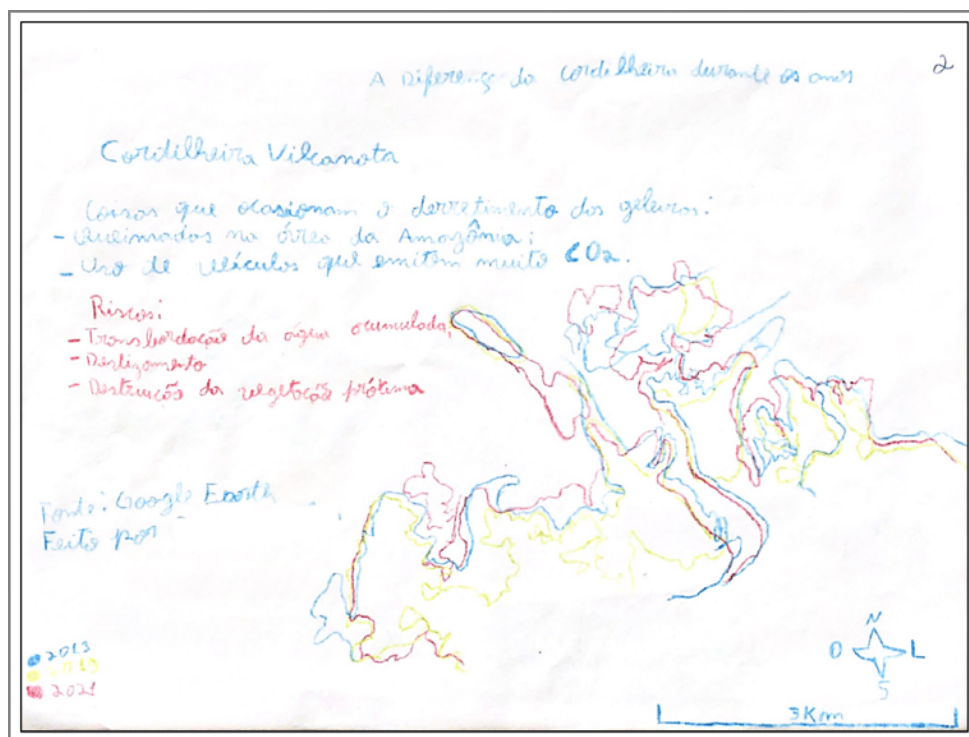 A Diferença da cordilheira durante os anos
2
Cordilheira Vilcanota
Coisas que ocasionam o derretimento dos geleiros:
- Queimadas na área da Amazônia;
- Uso de veículos que emitem muito CO2.
Riscos:
- Transbordação da água acumulada;
- Deslizamento
- Destruição da vegetação próxima
Fonte: Google Earth
Feito por
2013
2019
2021
N
O L
S
3Km